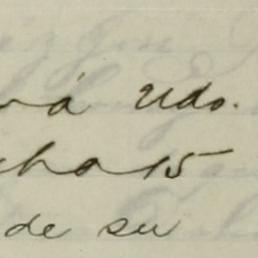 vá Udo.
cha 15
de su